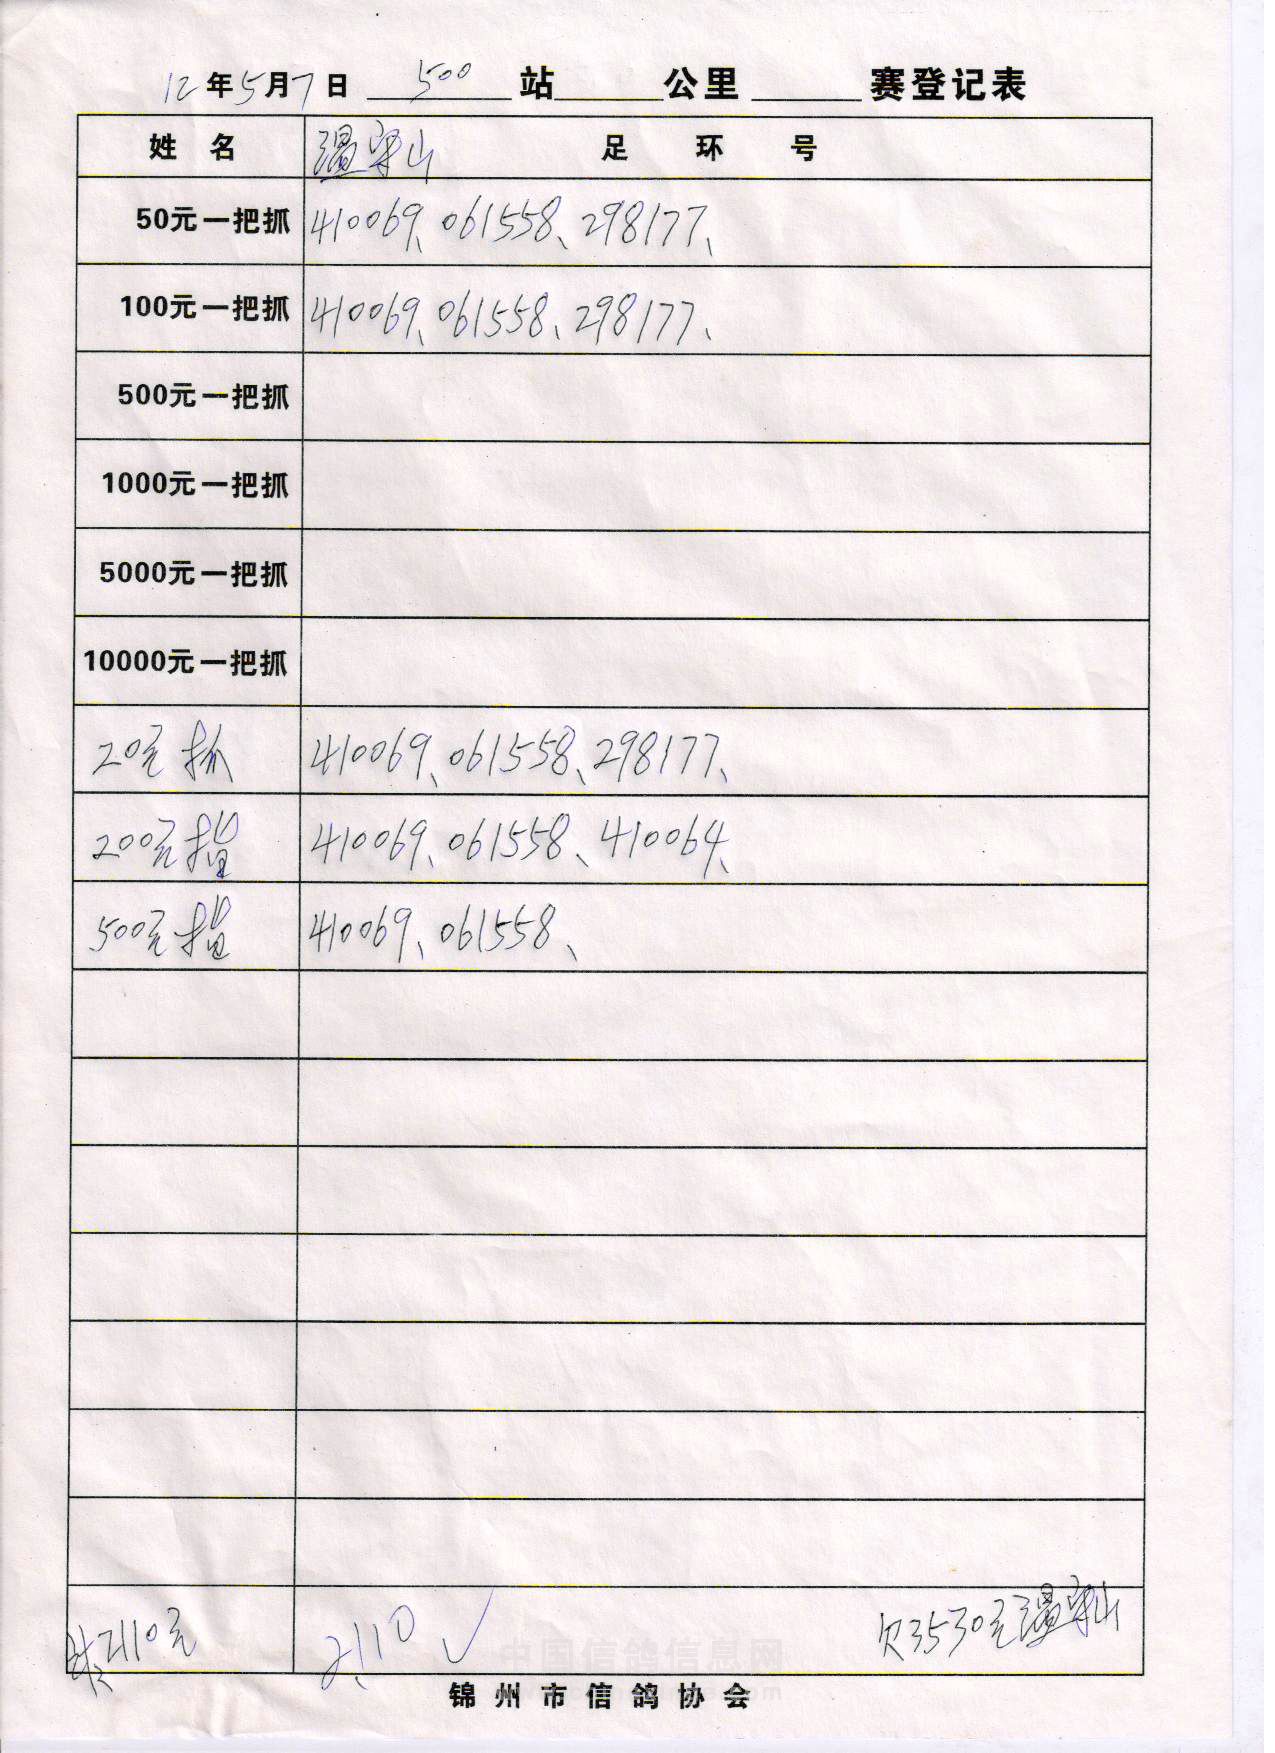 12年5月7日 500 站 公里 赛登记表
姓 名 温守山 足 环 号
50元一把抓 410069、061558、298177、
100元一把抓 410069、061558、298177、
500元一把抓
1000元一把抓
5000元一把抓
10000元一把抓
20元抓 410069、061558、298177、
200元指 410069、061558、410064、
500元指 410069、061558、
2110元 2110 欠3530元温守山
中国信鸽信息网
锦州市信鸽协会